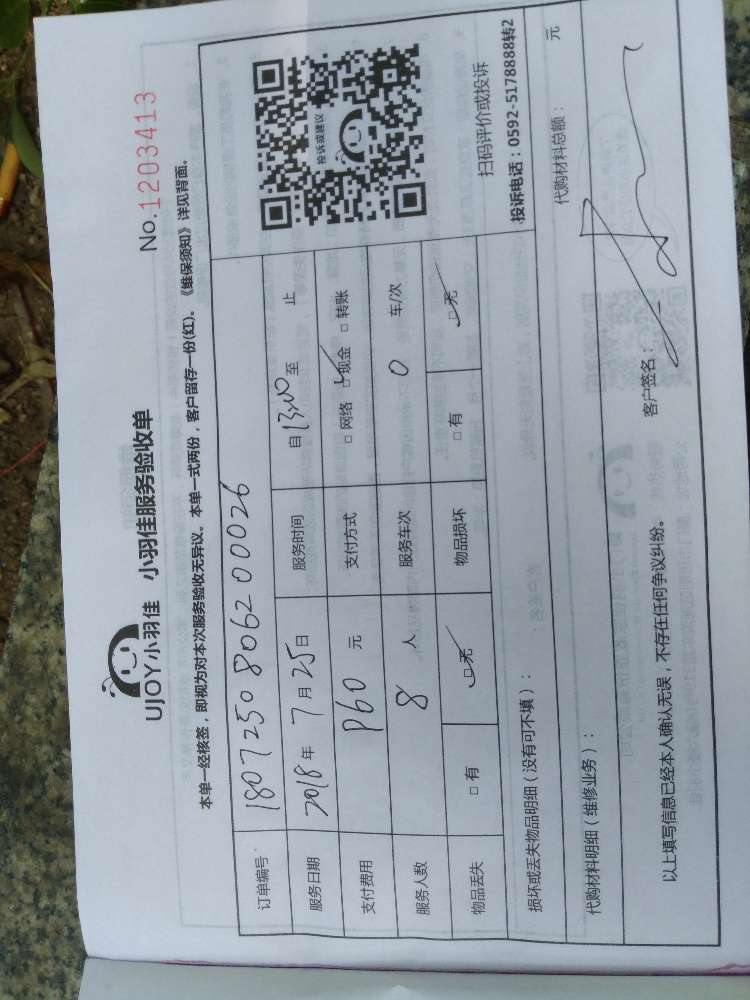 UJOY小羽佳 小羽佳服务验收单 No.1203413
本单一经核签，即视为对本次服务验收无异议。本单一式两份，客户留存一份(红)。《维保须知》详见背面。
订单编号 180725080620026
服务日期 2018年7月25日 服务时间 自13:00至 止
支付费用 960元 支付方式 □网络 □现金 □转账
服务人数 8人 服务车次 0 车/次
物品丢失 □有 □无 物品损坏 □有 □无
投诉或建议
扫码评价或投诉
投诉电话：0592-5178888转2
损坏或丢失物品明细（没有可不填）：
代购材料明细（维修业务）： 代购材料总额： 元
以上填写信息已经本人确认无误，不存在任何争议纠纷。 客户签名：